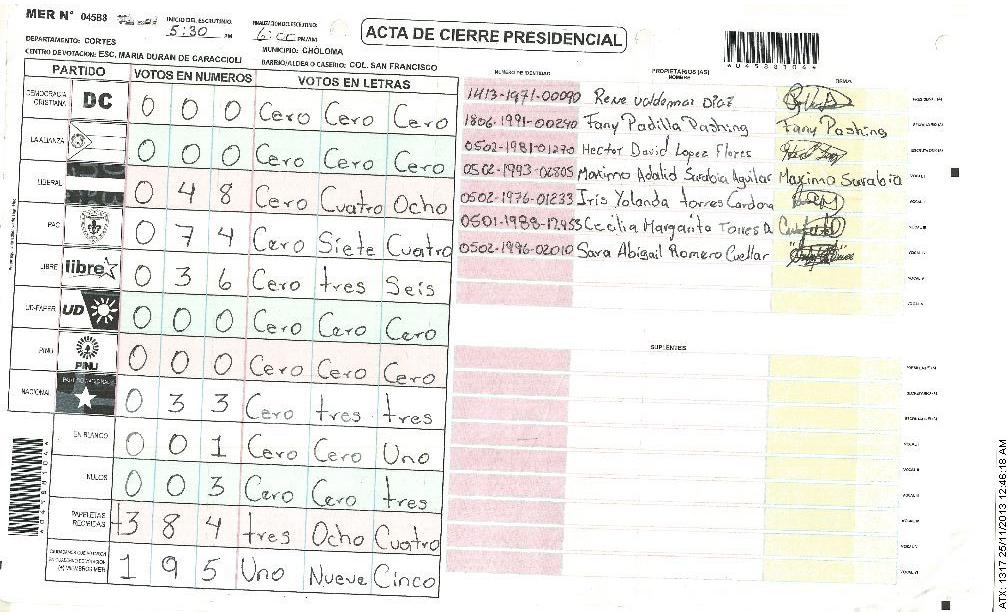 MER N° 04588
INICIO DEL ESCRUTINIO:
5:30 PM
FINALIZACION DEL ESCRUTINIO:
6:00 PM/AM
ACTA DE CIERRE PRESIDENCIAL
DEPARTAMENTO: CORTES
MUNICIPIO: CHOLOMA
CENTRO DE VOTACION: ESC. MARIA DURAN DE CARACCIOLI
BARRIO/ALDEA O CASERIO: COL. SAN FRANCISCO
PARTIDO VOTOS EN NUMEROS VOTOS EN LETRAS
DEMOCRACIA CRISTIANA DC 0 0 0 Cero Cero Cero
LA ALIANZA 0 0 0 Cero Cero Cero
LIBERAL 0 4 8 Cero Cuatro Ocho
PAC 0 7 4 Cero Siete Cuatro
LIBRE libre 0 3 6 Cero tres Seis
UD-FAPER UD 0 0 0 Cero Cero Cero
PINU PINU 0 0 0 Cero Cero Cero
NACIONAL 0 3 3 Cero tres tres
EN BLANCO 0 0 1 Cero Cero Uno
NULOS 0 0 3 Cero Cero tres
PAPELETAS RECIBIDAS 3 8 4 tres Ocho Cuatro
1 9 5 Uno Nueve Cinco
NUMERO DE IDENTIDAD PROPIETARIOS (AS) NOMBRE FIRMA
1413-1971-00090 Rene Valdemar Diaz
1806-1991-00240 Fany Padilla Pashing Fany Pashing
0502-1981-01270 Hector David Lopez Flores
0502-1993-02805 Maximo Adalid Sarabia Aguilar Maximo Sarabia
0502-1976-01233 Iris Yolanda torres Cardona
0501-1988-12453 Cecilia Margarita Torres D.
0502-1996-02010 Sara Abigail Romero Cuellar
SUPLENTES
ATX: 1317 25/11/2013 12:46:18 AM